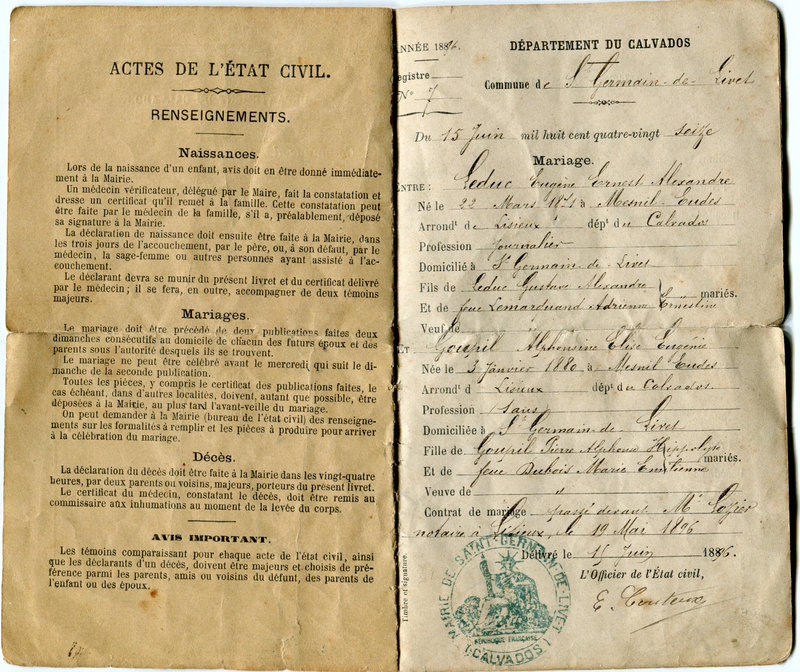 ACTES DE L'ÉTAT CIVIL.
RENSEIGNEMENTS.
Naissances.
Lors de la naissance d'un enfant, avis doit en être donné immédiate-
ment à la Mairie.
Un médecin vérificateur, délégué par le Maire, fait la constatation et
dresse un certificat qu'il remet à la famille. Cette constatation peut
être faite par le médecin de la famille, s'il a, préalablement, déposé
sa signature à la Mairie.
La déclaration de naissance doit ensuite être faite à la Mairie, dans
les trois jours de l'accouchement, par le père, ou, à son défaut, par le
médecin, la sage-femme ou autres personnes ayant assisté à l'ac-
couchement.
Le déclarant devra se munir du présent livret et du certificat délivré
par le médecin; il se fera, en outre, accompagner de deux témoins
majeurs.
Mariages.
Le mariage doit être précédé de deux publications faites deux
dimanches consécutifs au domicile de chacun des futurs époux et des
parents sous l'autorité desquels ils se trouvent.
Le mariage ne peut être célébré avant le mercredi qui suit le di-
manche de la seconde publication.
Toutes les pièces, y compris le certificat des publications faites, le
cas échéant, dans d'autres localités, doivent, autant que possible, être
déposées à la Mairie, au plus tard l'avant-veille du mariage.
On peut demander à la Mairie (bureau de l'état civil) des renseigne-
ments sur les formalités à remplir et les pièces à produire pour arriver
à la célébration du mariage.
Décès.
La déclaration du décès doit être faite à la Mairie dans les vingt-quatre
heures, par deux parents ou voisins, majeurs, porteurs du présent livret.
Le certificat du médecin, constatant le décès, doit être remis au
commissaire aux inhumations au moment de la levée du corps.
AVIS IMPORTANT.
Les témoins comparaissant pour chaque acte de l'état civil, ainsi
que les déclarants d'un décès, doivent être majeurs et choisis de pré-
férence parmi les parents, amis ou voisins du défunt, des parents de
l'enfant ou des époux.
ANNÉE 1896.
Registre
No 7
DÉPARTEMENT DU CALVADOS
Commune de St Germain-de-Livet
Du 15 Juin mil huit cent quatre-vingt seize
Mariage.
ENTRE: Leduc Eugène Ernest Alexandre
Né le 22 Mars 1871 à Mesnil-Eudes
Arrondt de Lisieux dépt du Calvados
Profession Journalier
Domicilié à St Germain-de-Livet
Fils de Leduc Gustave Alexandre
Et de feue Lemarduand Adrienne Ernestine mariés.
Veuf de
ET Goupil Alphonsine Elise Eugénie
Née le 3 Janvier 1880 à Mesnil Eudes
Arrondt d Lisieux dépt du Calvados.
Profession Sans
Domiciliée à St Germain-de-Livet
Fille de Goupil Pierre Alphonse Hippolyte
Et de feue Dubois Marie mariés.
Veuve de "
Contrat de mariage passé devant Me Lozier
notaire à Lisieux, le 19 Mai 1896
Délivré le 15 Juin 1896.
L'Officier de l'État civil,
Timbre et signature.
MAIRIE DE SAINT-GERMAIN-DE-LIVET
RÉPUBLIQUE FRANÇAISE
(CALVADOS)